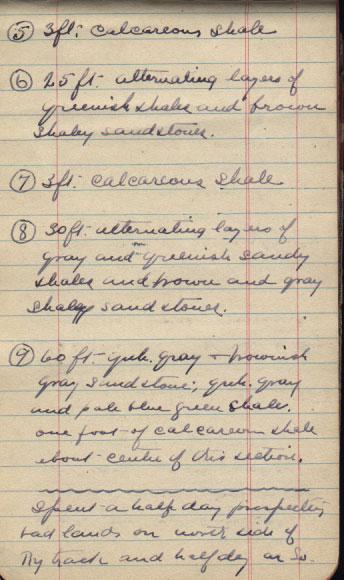 ⑤ 3ft: calcareous shale
⑥ 25 ft- alternating layers of
greenish shales and brown
shaley sandstones.
⑦ 3ft. calcareous shale
⑧ 30ft- alternating layers of
gray and greenish sandy
shales and brown and gray
shaley sandstones.
⑨ 60 ft- gnh. gray + brownish
gray sandstone; gnh. gray
and pale blue green shale.
one foot of calcareous shale
about centre of this section.
I spent a half day prospecting
bad lands on north side of
Ry track and half day on So.